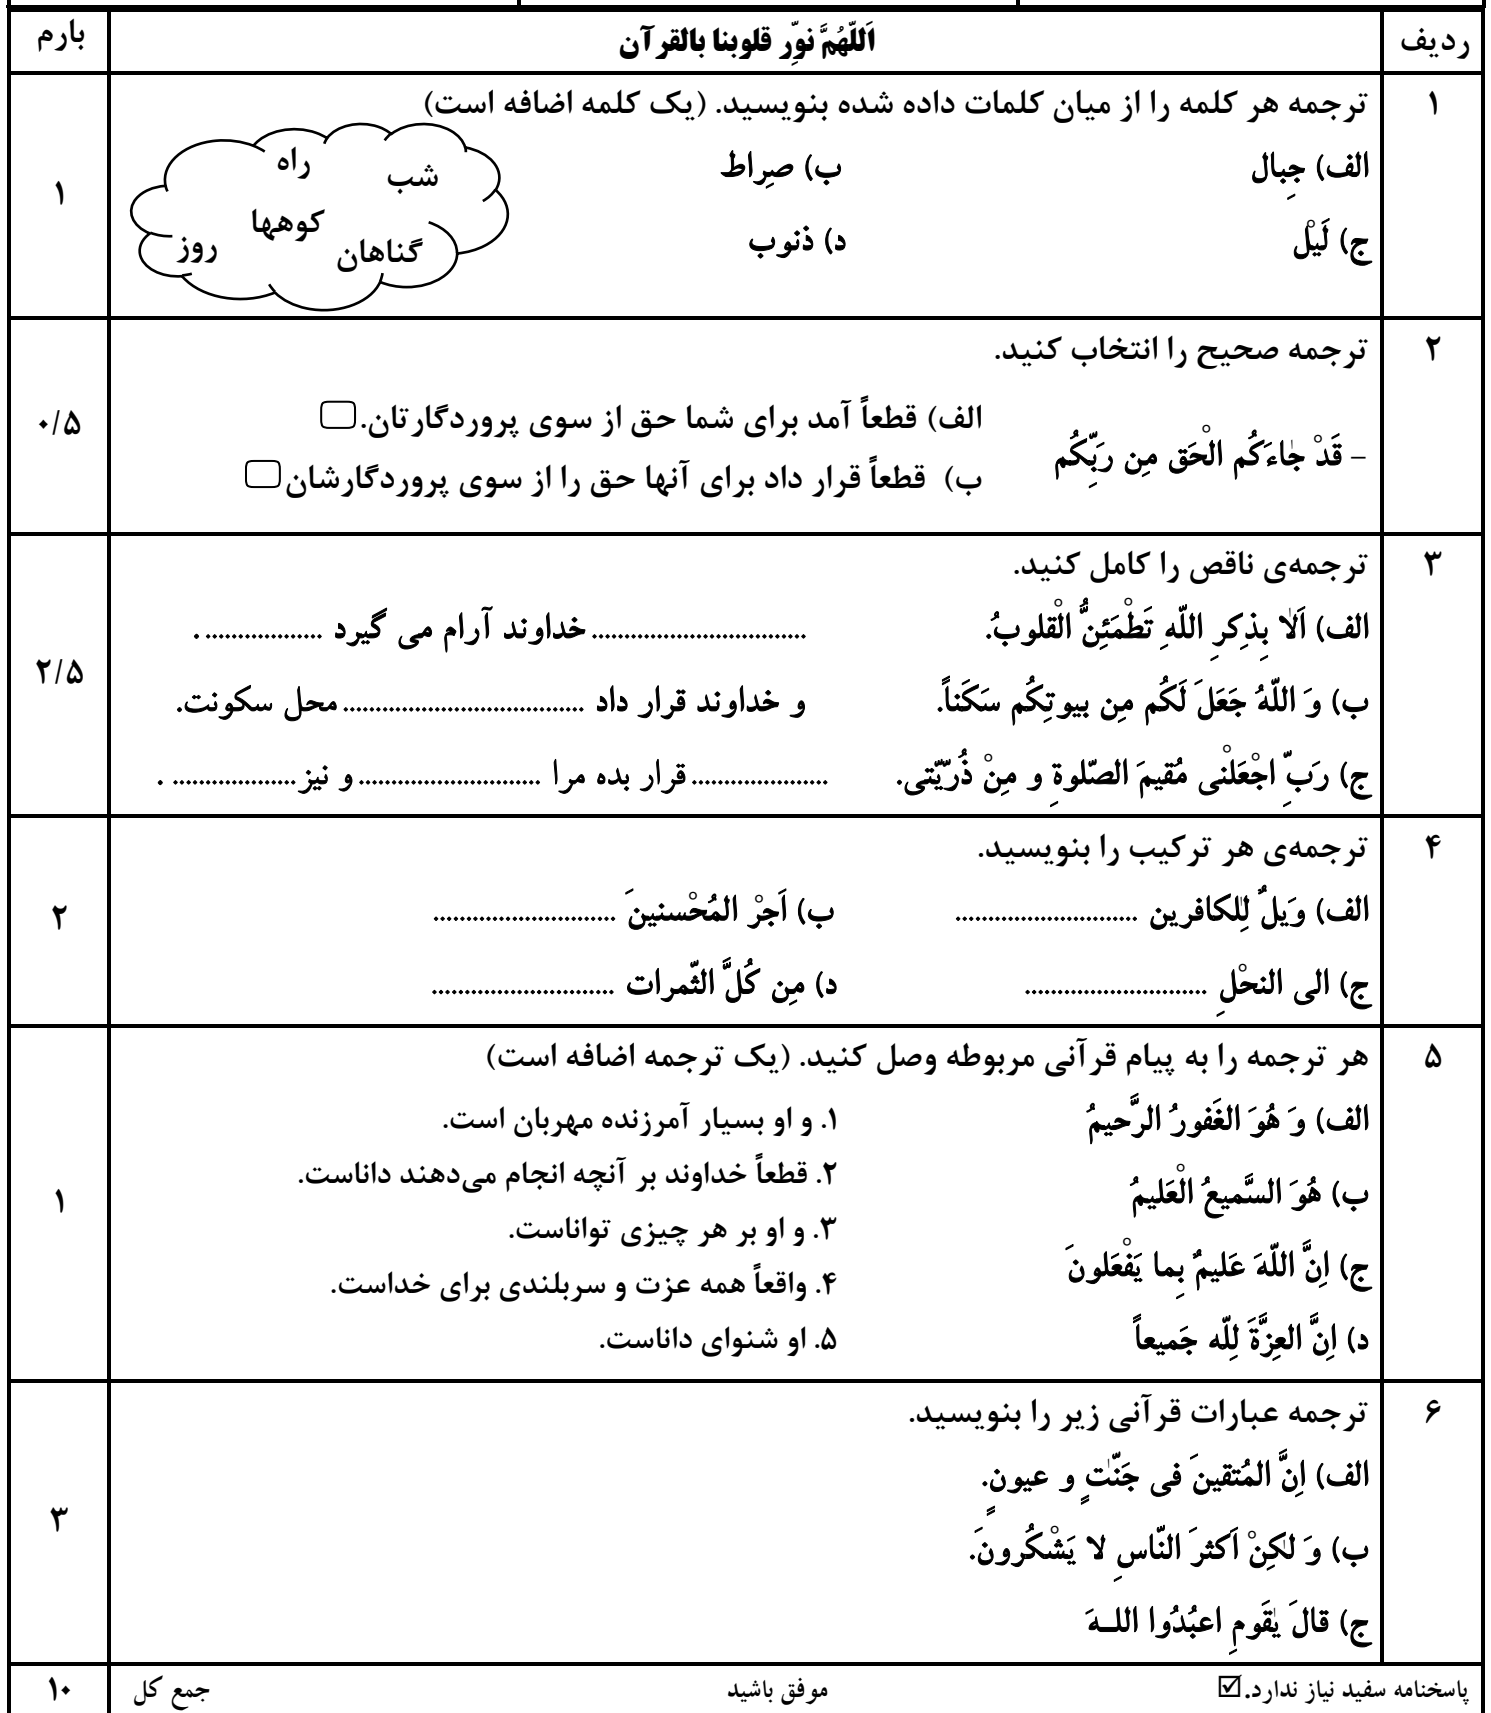 ردیف	اَللّهُمَّ نوِّر قلوبنا بالقرآن	بارم
۱	ترجمه هر کلمه را از میان کلمات داده شده بنویسید. (یک کلمه اضافه است)	۱
الف) جِبال	ب) صِراط
ج) لَیْل	د) ذنوب
راه	شب
کوهها
گناهان	روز
۲	ترجمه صحیح را انتخاب کنید.	۰/۵
– قَدْ جٰاءَکُم الْحَق مِن رَبِّکُم
الف) قطعاً آمد برای شما حق از سوی پروردگارتان.
ب) قطعاً قرار داد برای آنها حق را از سوی پروردگارشان
۳	ترجمه‌ی ناقص را کامل کنید.	۲/۵
الف) اَلا بِذِکرِ اللّهِ تَطْمَئِنُّ الْقلوبُ.	................................. خداوند آرام می گیرد .................. .
ب) وَ اللّهُ جَعَلَ لَکُم مِن بیوتِکُم سَکَناً.	و خداوند قرار داد ..................................... محل سکونت.
ج) رَبِّ اجْعَلْنی مُقیمَ الصّلوةِ و مِنْ ذُرّیَّتی.	..................... قرار بده مرا ............................ و نیز ................... .
۴	ترجمه‌ی هر ترکیب را بنویسید.	۲
الف) وَیلٌ لِلکافرین ............................	ب) اَجرْ المُحْسنینَ ............................
ج) الی النحْلِ ............................	د) مِن کُلَّ الثّمرات ............................
۵	هر ترجمه را به پیام قرآنی مربوطه وصل کنید. (یک ترجمه اضافه است)	۱
الف) وَ هُوَ الغَفورُ الرَّحیمُ
ب) هُوَ السَّمیعُ الْعَلیمُ
ج) اِنَّ اللّهَ عَلیمٌ بِما یَفْعَلونَ
د) اِنَّ العِزَّةَ لِلّه جَمیعاً
۱. و او بسیار آمرزنده مهربان است.
۲. قطعاً خداوند بر آنچه انجام می‌دهند داناست.
۳. و او بر هر چیزی تواناست.
۴. واقعاً همه عزت و سربلندی برای خداست.
۵. او شنوای داناست.
۶	ترجمه عبارات قرآنی زیر را بنویسید.	۳
الف) اِنَّ المُتقینَ فی جَنّٰتٍ و عیونٍ.
ب) وَ لکِنْ اَکثرَ النّاسِ لا یَشْکُرونَ.
ج) قالَ یٰقَومِ اعبُدُوا اللـهَ
پاسخنامه سفید نیاز ندارد.☑	موفق باشید	جمع کل	۱۰